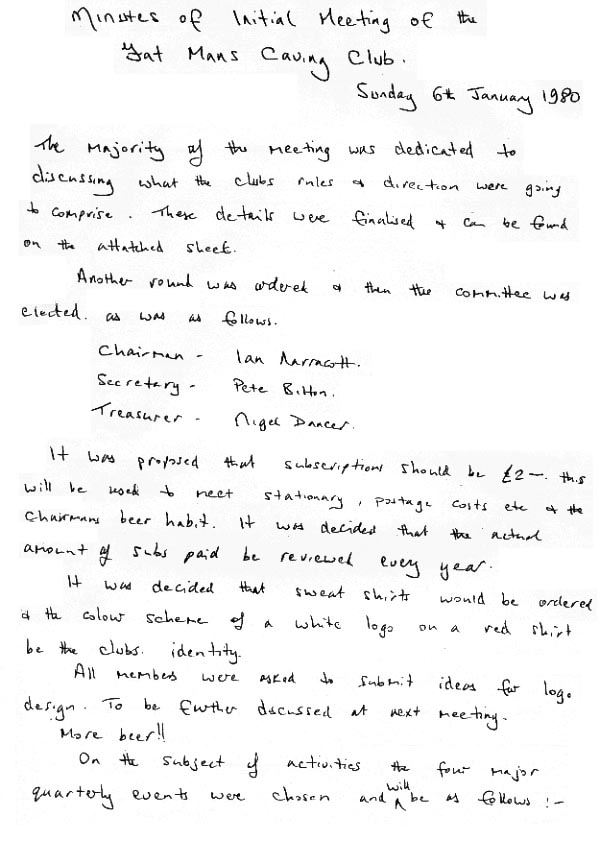 Minutes of Initial Meeting of the
Fat Mans Caving Club.
Sunday 6th January 1980
The majority of the meeting was dedicated to
discussing what the clubs rules & direction were going
to comprise. These details were finalised & can be found
on the attatched sheet.
Another round was ordered & then the committee was
elected. as was as follows.
Chairman - Ian Marracott.
Secretary - Pete Bitton.
Treasurer - Nigel Dancer.
It was proposed that subscriptions should be £2—. this
will be used to meet stationary, postage costs etc & the
Chairmans beer habit. It was decided that the actual
amount of subs paid be reviewed every year.
It was decided that sweat shirts would be ordered
& the colour scheme of a white logo on a red shirt
be the clubs. identity.
All members were asked to submit ideas for logo
design. To be further discussed at next meeting.
More beer!!
On the subject of activities the four major
quarterly events were chosen and will be as follows :-